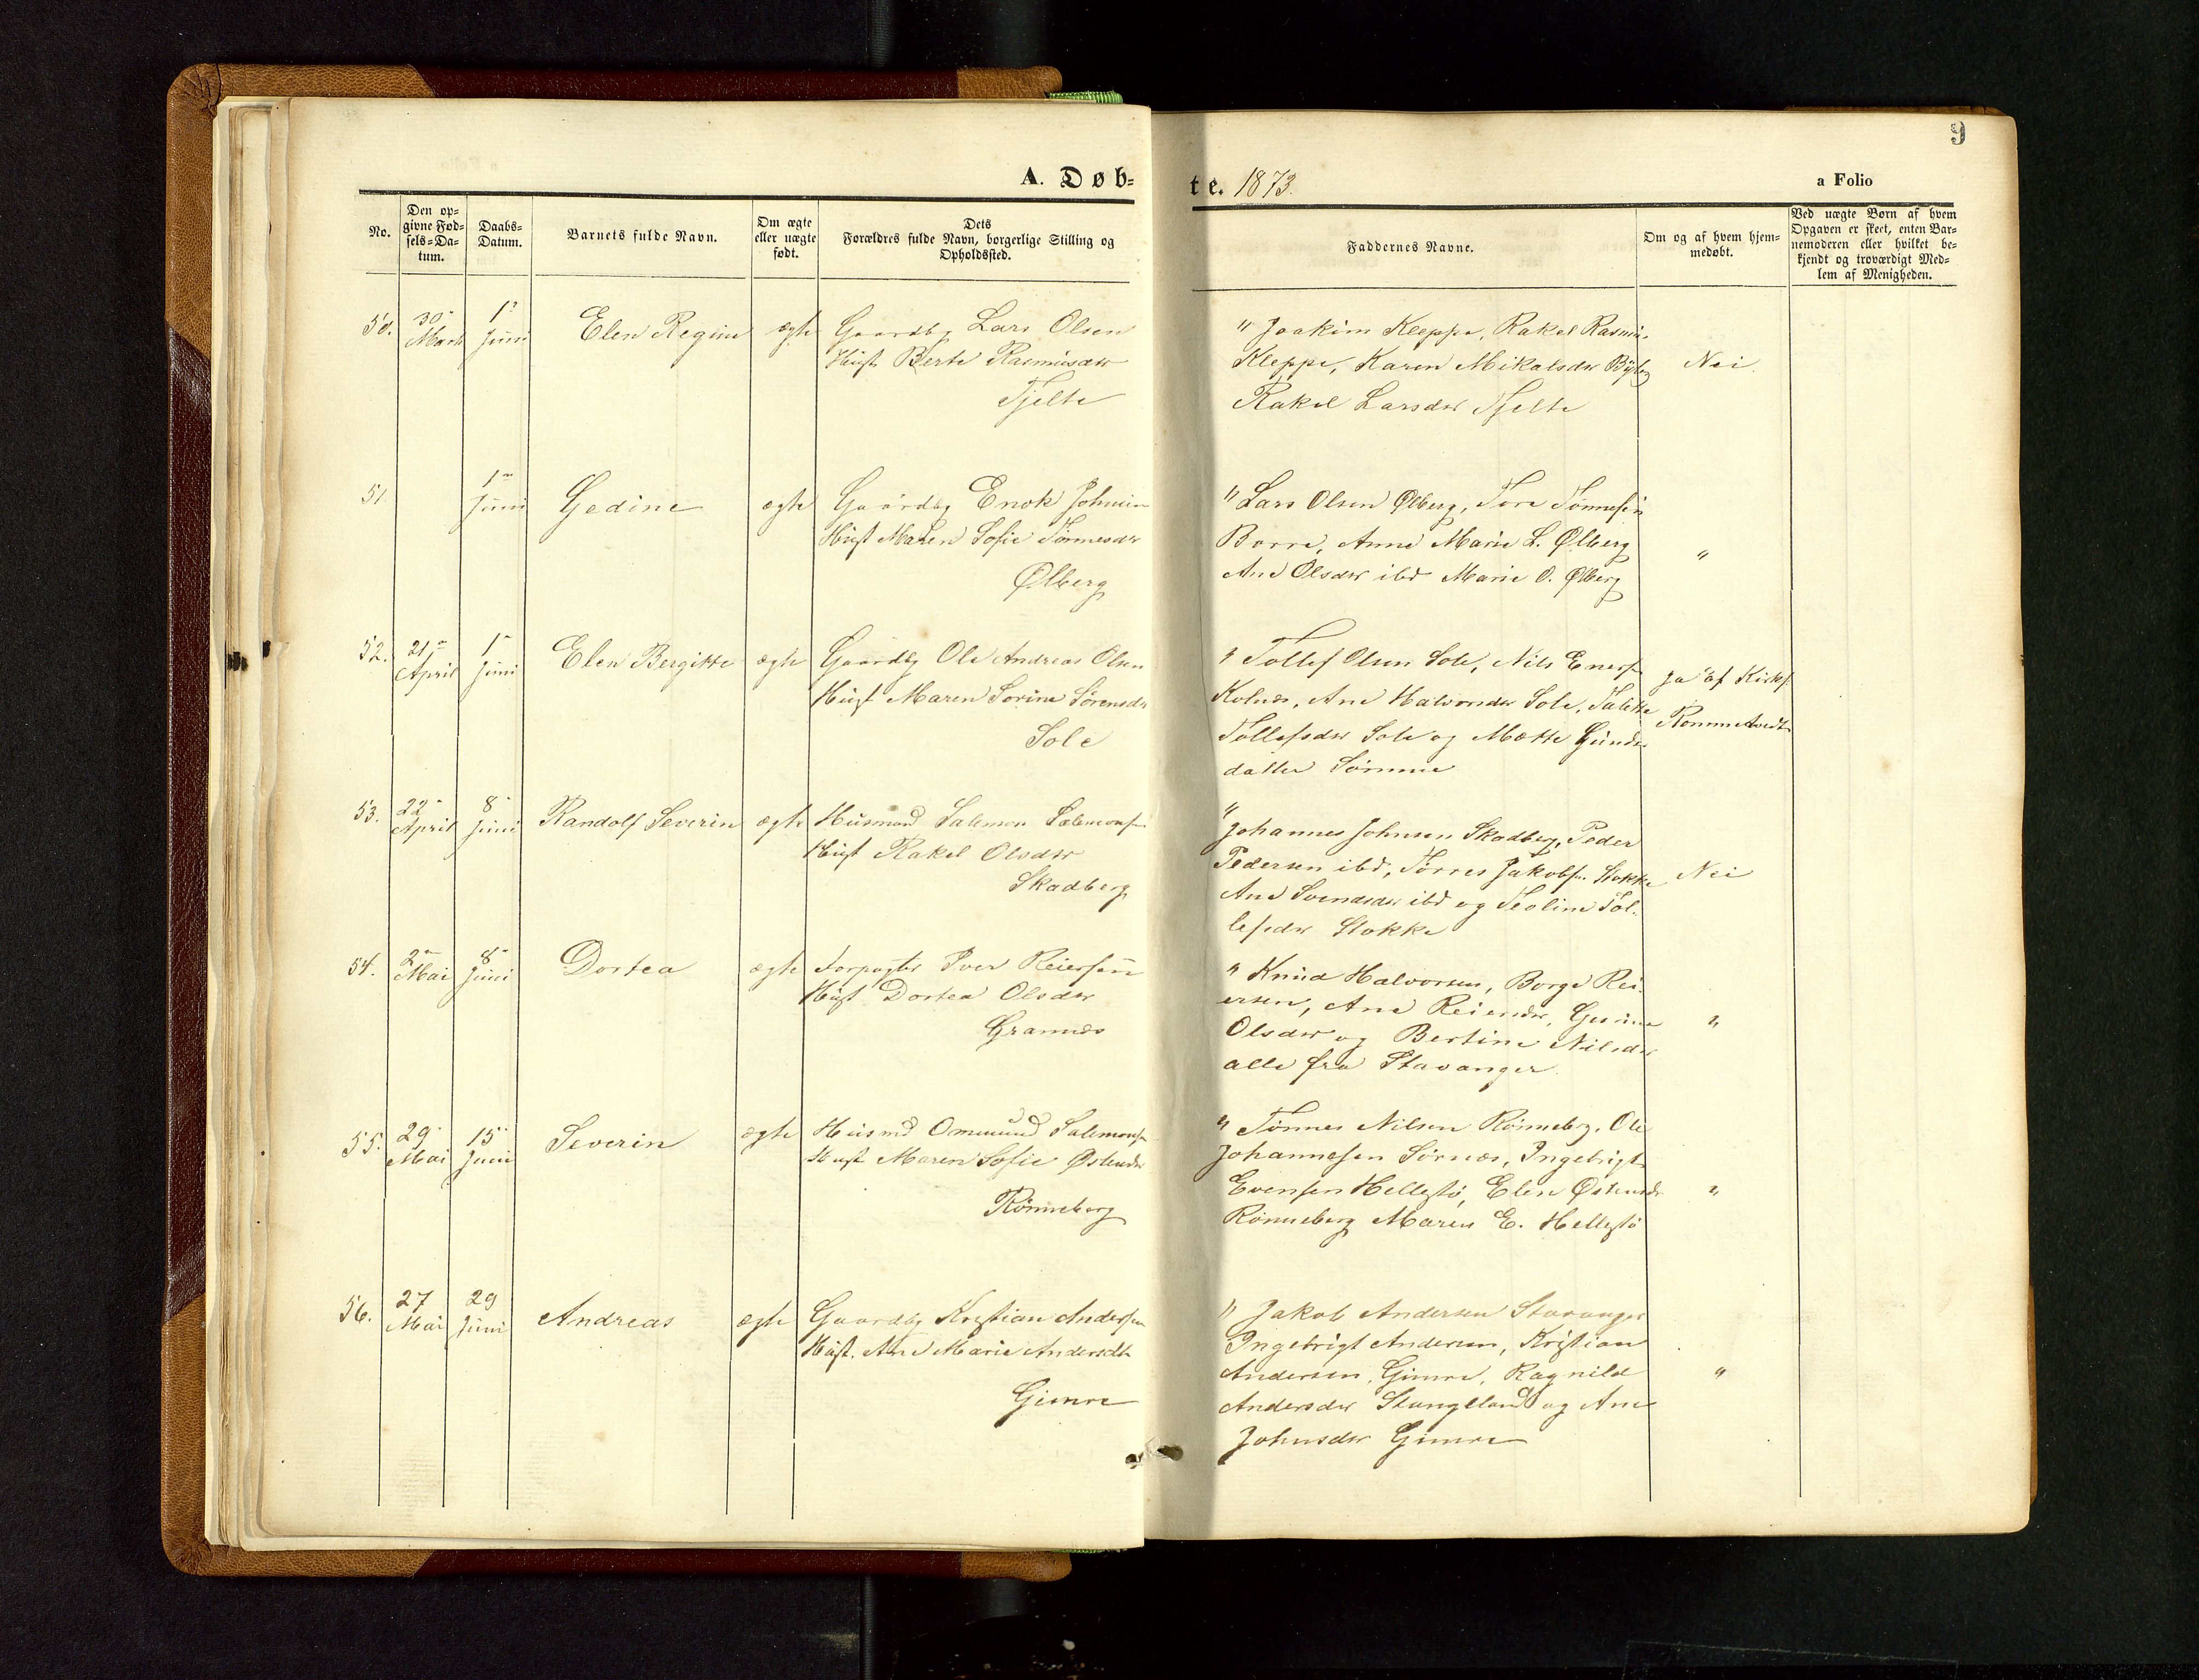 9
A. Døb-
te. 1873.
a Folio
No.
Den op-
givne Fød-
sels-Da-
tum.
Daabs-
Datum.
Barnets fulde Navn.
Om ægte
eller uægte
født.
Dets
Forældres fulde Navn, borgerlige Stilling og
Opholdssted.
Faddernes Navne.
Om og af hvem hjem-
medøbt.
Ved uægte Børn af hvem
Opgaven er skeet, enten Bar-
nemoderen eller hvilket be-
kjendt og troværdigt Med-
lem af Menigheden.
50. 30 Marts 1 Juni Elen Regine ægte Gaardbg Lars Olsen
Hust Berte Rasmusdtr
Tjelte
" Joakim Kleppe, Rakel Rasmus.
Kleppe, Karen Mikalsdtr
Rakel Larsdtr Tjelte
Nei.
51. 1 Juni Gedine ægte Gaardbg Enok Johnsen
Hust Maren Sofie Tönnesdtr
Ølberg
" Lars Olsen Ølberg, Tore Tönnesen
Borre, Anne Marie L. Ølberg
Ane Olsdtr ibd Marie O. Ølberg
"
52. 21 April 1 Juni Elen Bergitte ægte Gaardbg Ole Andreas Olsen
Hust Maren Sorine Sörensdtr
Sole
" Tollef Olsen Sole, Nils Enersen
Kolnes, Ane Halvorsdtr Sole, Talette
Tollefsdtr Sole og Mette Gunders
datter Sömme
ja af Kirks.
Rommetvedt
53. 22 April 8 Juni Randolf Severin ægte Husmand Salemon Salemonsen
Hust Rakel Olsdtr
Skadberg
"
Johannes Johnsen Skadberg, Peder
Pedersen ibd, Törres Jakobsen Stokke
Ane Svendsdtr ibd og Teoline Tol-
lefsdtr Stokke
Nei
54. 2 Mai 8 Juni Dortea ægte Forpagter Iver Reiersen
Hust Dortea Olsdtr
Grannes
" Knud Halvorsen, Borge Rei-
ersen, Ane Reiersdtr, Gurine
Olsdtr og Bertine Nilsdtr
alle fra Stavanger
"
55. 29 Mai 15 Juni Severin ægte Husmd Ommund Salemonsen
Hust Maren Sofie Østensdtr
Rönneberg
" Tönnes Nilsen Rönneberg, Ole
Johannesen Sörnes, Ingebrigt
Evensen Hellestö, Elen Østensdtr
Rönneberg Maren E. Hellestö
"
56. 27 Mai 29 Juni Andreas ægte Gaardbg Kristian Andersen
Hust. Ane Marie Andersdtr
Gimre
" Jakob Andersen Stavanger
Ingebrigt Andersen, Kristian
Andersen, Gimre, Ragnild
Andersdtr Stangeland og Ane
Johnsdtr Gimre
"